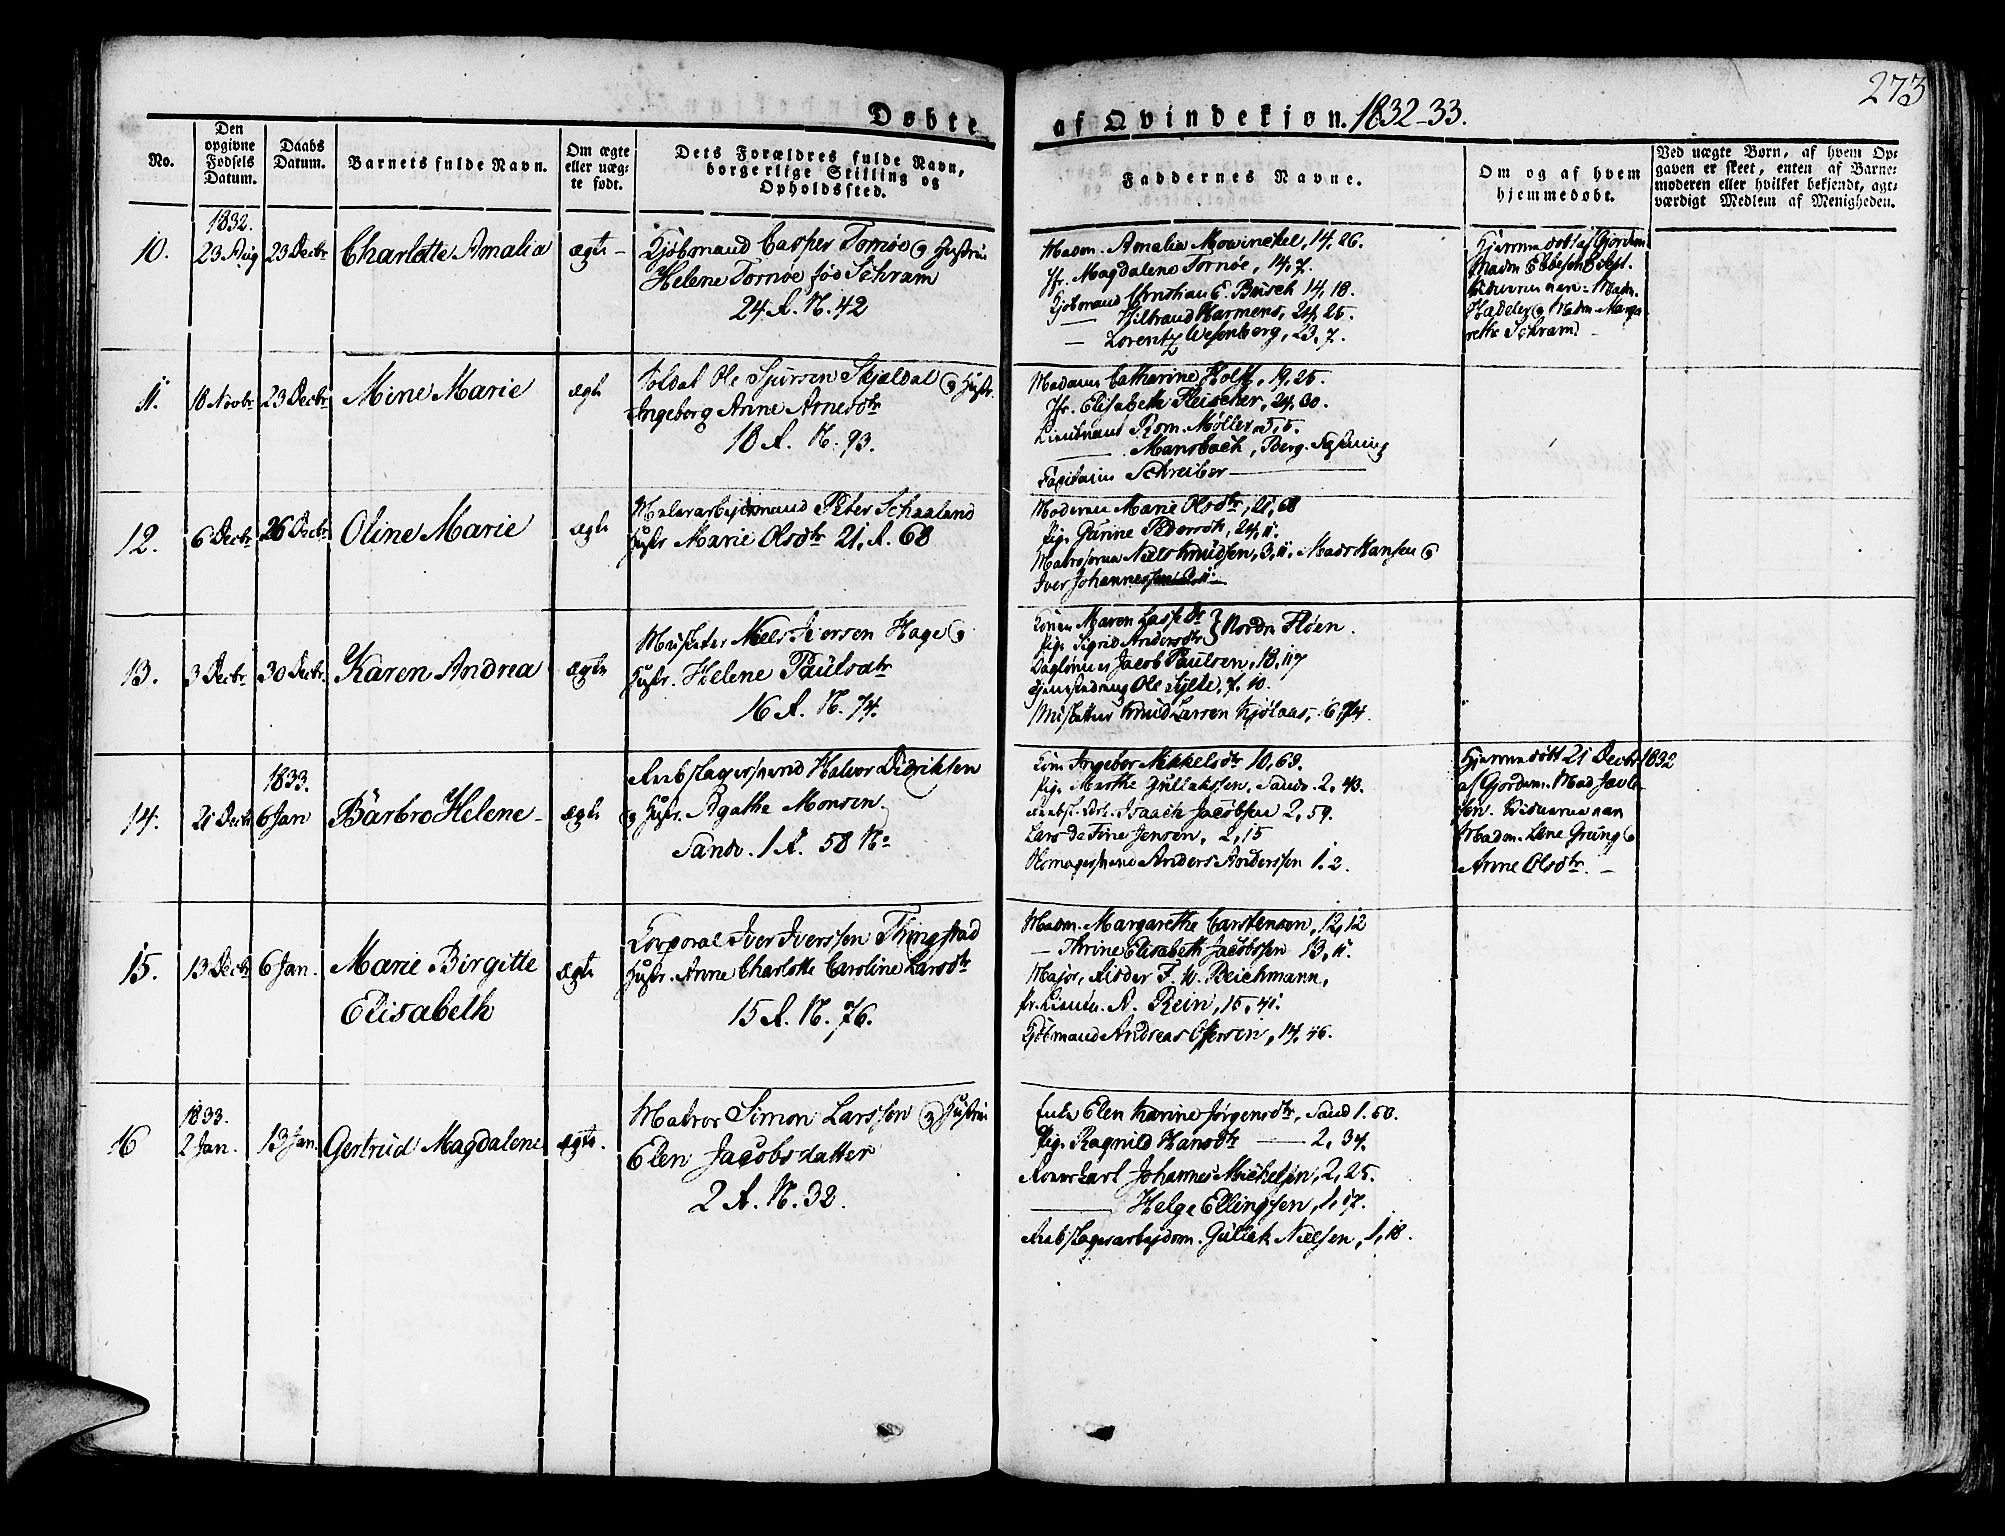 273
Døbte af Qvindekjøn. 1832-33.
No.
Den opgivne Fødsels Datum.
Daabs Datum.
Barnets fulde Navn.
Om ægte eller uægte født.
Dets Forældres fulde Navn, borgerlige Stilling og Opholdssted.
Faddernes Navne.
Om og af hvem hjemmedøbt.
Ved uægte Børn, af hvem Opgaven er skeet, enten af Barnemoderen eller hvilket bekjendt, agtværdigt Medlem af Menigheden.
1832.
10. 23 Aug 23 Decbr Charlotte Amalia ægte -
Kjøbmand Casper Tornøe og Hustrue
Helene Tornøe fød Schram
24. A. N. 42
Madm. Amalia Mowinckel, 14, 26.
Jfr. Magdalene Tornøe, 14, 7.
Kjøbmand Christian E. Büsch 14, 18.
— Hilbrand Harmens, 24, 25.
— Lorentz Wesenberg, 23, 7.
Hjemmedøbt af Gjordem.
Madm Ebbesen 8 Sept.
Vidnerne var: Madm.
og Madm Marga
rethe Schram
11. 18 Novbr 23 Decbr Mine Marie ægte
Soldat Ole Sjursen Skjældal og Hustr.
Ingeborg Anne Arnesdtr
18 A. N. 93.
Madame Catharine Holst, 19, 25.
Jfr. Elisabeth Fleischer, 24, 30.
Lieutnant Rom. Møller, 5, 5.
— Mansbach, Berg. Fæstning
Capitain Schreiber —
12. 6 Decbr 26 Decbr Oline Marie ægte
Malerarbejdsmand Peter Schaaland
Hustr Marie Olsdtr 21, A. 68
Moderen Marie Olsdtr, 21, 68
Pig. Gurine Pedersdtr, 24, 11.
Matroserne Niels Knudsen, 3, 11. Mads Hansen og
Iver Johannessen
13. 3 Decbr 30 Decbr. Karen Andrea ægte
Musketer Niels Iversen Hage og
Hustr. Helene Paulsdtr
16 A. N. 74.
Konen Maren Lassedtr
Pig. Sigrid Andersdtr } Nordn Fløen.
Daglønner Jacob Paulsen, 18, 117
Tjenestedreng Ole Sylte, 7, 10.
Musketeer Knud Larsen Kjølaas, 6, 74.
1833.
14. 21 Decbr 6 Jan Barbro Helene - ægte
Reebslagersvend Halvor Didriksen
og Hustr. Agathe Monsen.
Sandv. 1 A. 58 N.
Kone Ingebor Mikkelsdtr 10, 69.
Pig. Marthe Gullaksen, Sandv. 2, 43.
Isaach Jacobsen 2, 59.
Lars da Fine Jensen, 2, 15
Anders Anderssen 1. 2.
Hjemmedøbt 21 Decbr 1832
af Gjordem. Mad Jacob-
sen. Vidnerne var
Madm. Lene Grung og
Anne Olsdtr. —
15. 13 Decbr 6 Jan. Marie Birgitte ægte
Elisabeth
Corporal Iver Iverssen Thingstad
Hustr. Anne Charlotte Caroline Larsdtr
15 A. N. 76.
Madm. Margarethe Carstensen, 12, 12
— Thrine Elisabeth Jacobsen 13, 11.
Major, Ridder F. W. Reichmann,
Pr. Lieutn. A. Rein, 15, 41.
Kjøbmand Andreas Offersen, 14, 46.
1833.
16 2 Jan. 13 Jan. Gertrud Magdalene ægte.
Matros Simon Larssen og Hustrue
Elen Jacobsdatter
2 A. N. 32.
Enke Elen Karine Jørgensdtr, Sand 1. 60.
Pig. Ragnild Hansdtr — 2, 34.
Johannes Mickelsen, 2, 25.
— Helge Ellingsen, 1, 17.
Reebslagerarbejdsm. Gullak Nielsen, 1, 18.